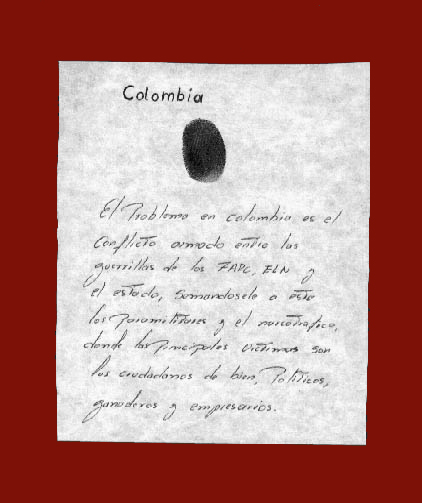 Colombia
El Problema en colombia es el
conflicto armado entre las
guerrillas de las FARC, ELN y
el estado, sumandosele a esto
los paramilitares y el narcotrafico,
donde las principales victimas son
los ciudadanos de bien, Politicos,
ganaderos y empresarios.